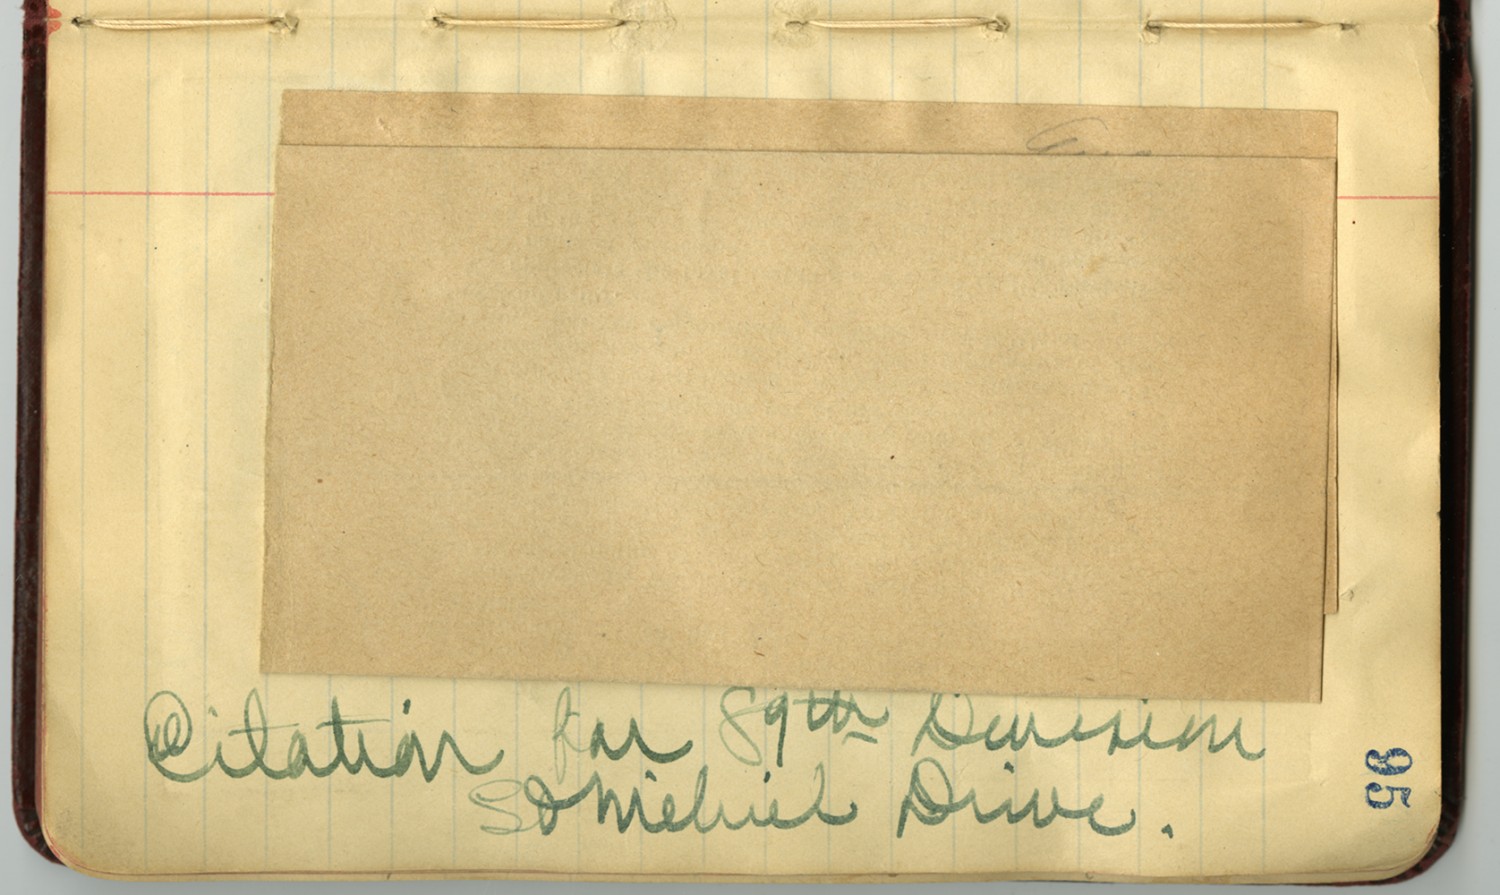 Citation for 89th Division
St Mehiel Drive.
95